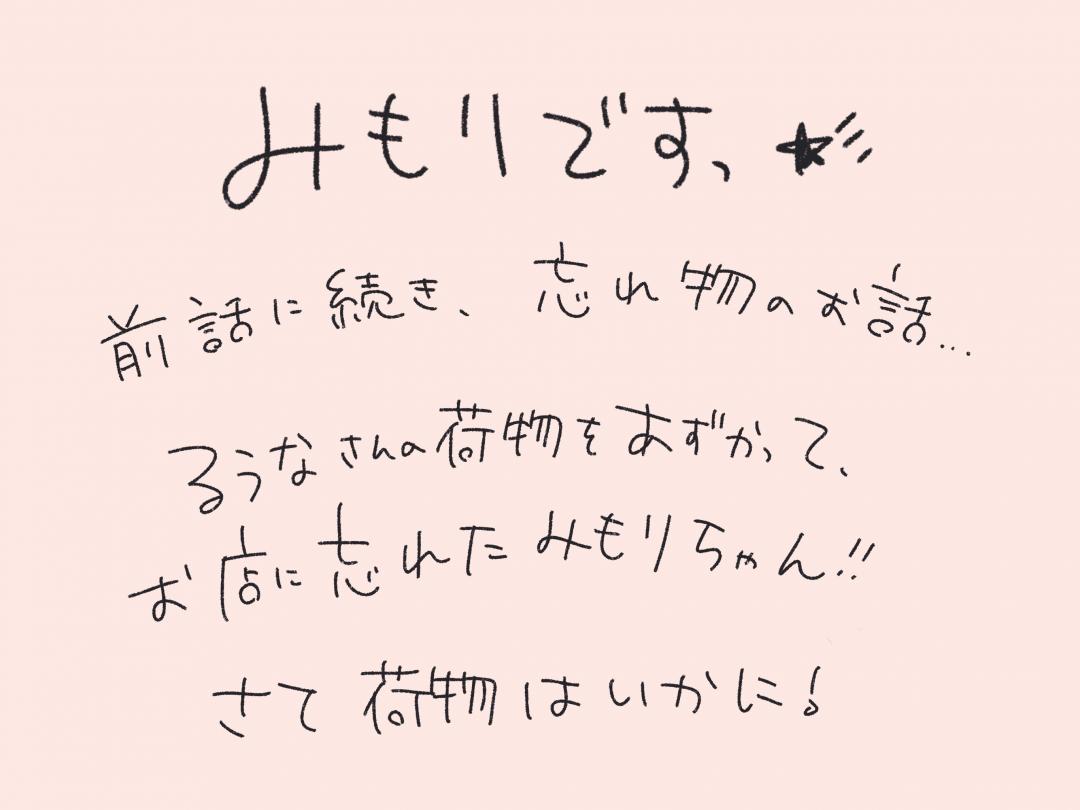 みもりです、★彡
前話に続き、忘れ物のお話...
るうなさんの荷物をあずかって、
お店に忘れたみもりちゃん!!
さて荷物はいかに!